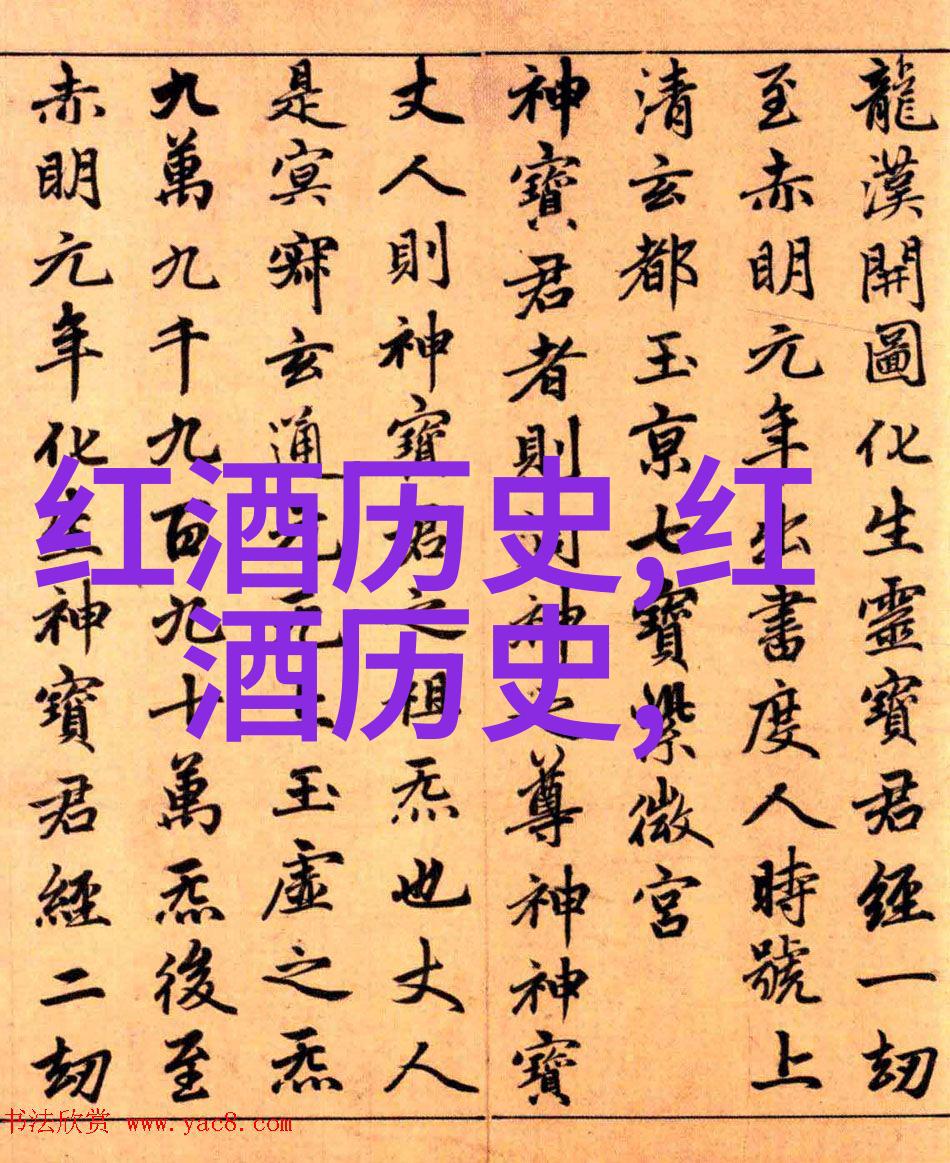 龍漢開圖化生靈寶君經一劫
至赤明元年出書度人時號上
清玄都玉京七寶紫微宮
神寶君者則洞神之尊神神寶
丈人則神寶君之祖炁也丈人
是寘寂玄通元无上玉虛之炁
九萬九千九百九十萬炁後至
赤明元年化生神寶君經二劫
红酒历史,红
酒历史,
书法欣赏 www.yac8.com